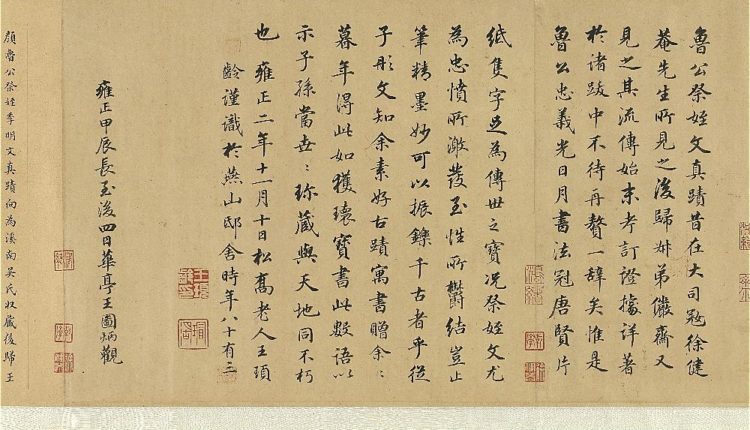 魯公祭姪文真蹟昔在大司寇徐健
菴先生所見之後歸弟儼齋又
見之其流傳始末考訂證據詳著
於諸跋中不待再贅一辭矣惟是
魯公忠義光日月書法冠唐賢片
紙隻字足為傳世之寶況祭姪文尤
為忠憤所激發至性所鬱結豈止
筆精墨妙可以振鑠千古者乎從
子彤文知余素好古蹟寓書贈余〻
暮年得此如獲瓌寶書此數語以
示子孫當世〻弥藏與天地同不朽
也雍正二年十一月十日松喬老人王頊
齡謹識於燕山邸舍時年八十有三
雍正甲辰長至後四日華亭王圖炳觀
顏魯公祭姪季明文真蹟向為溪南吳氏收藏後歸王